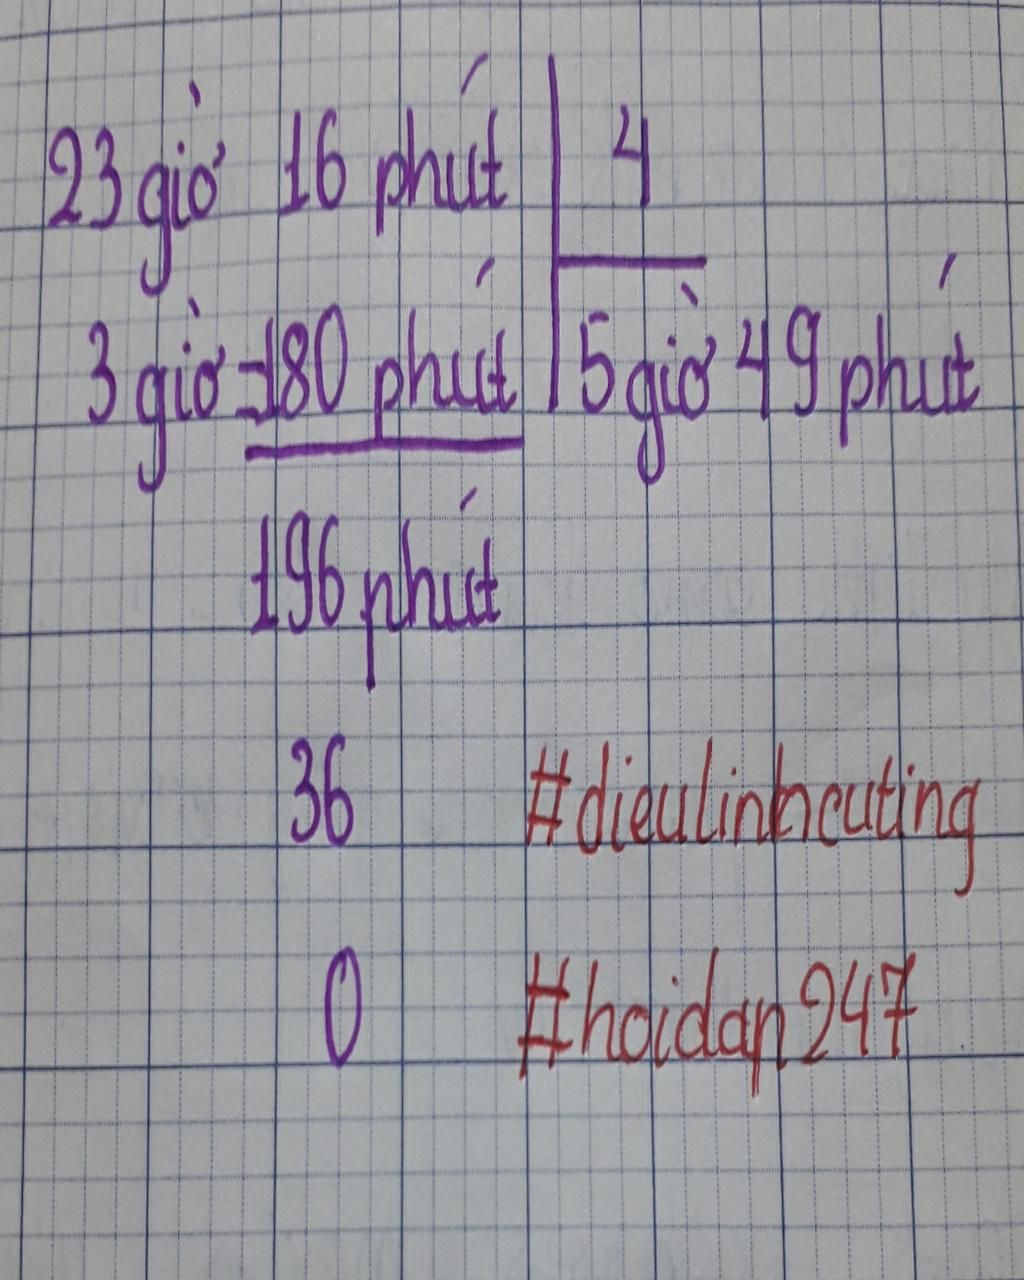 23 giờ 16 phút 4
3 giờ = 180 phút 5 giờ 49 phút
196 phút
36 #dieulinhcuting
0 #hoidap247